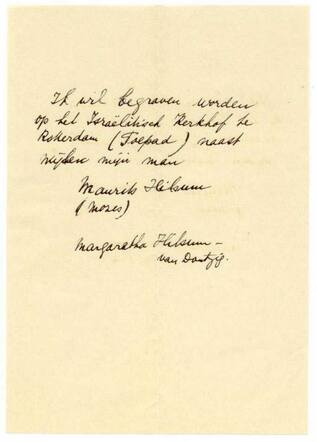 Ik wil begraven worden
op het Israëlitisch Kerkhof te
Rotterdam (Toepad) naast
wijlen mijn man
Maurits Hilsum
(Mozes)
Margaretha Hilsum-
van Dantzig.